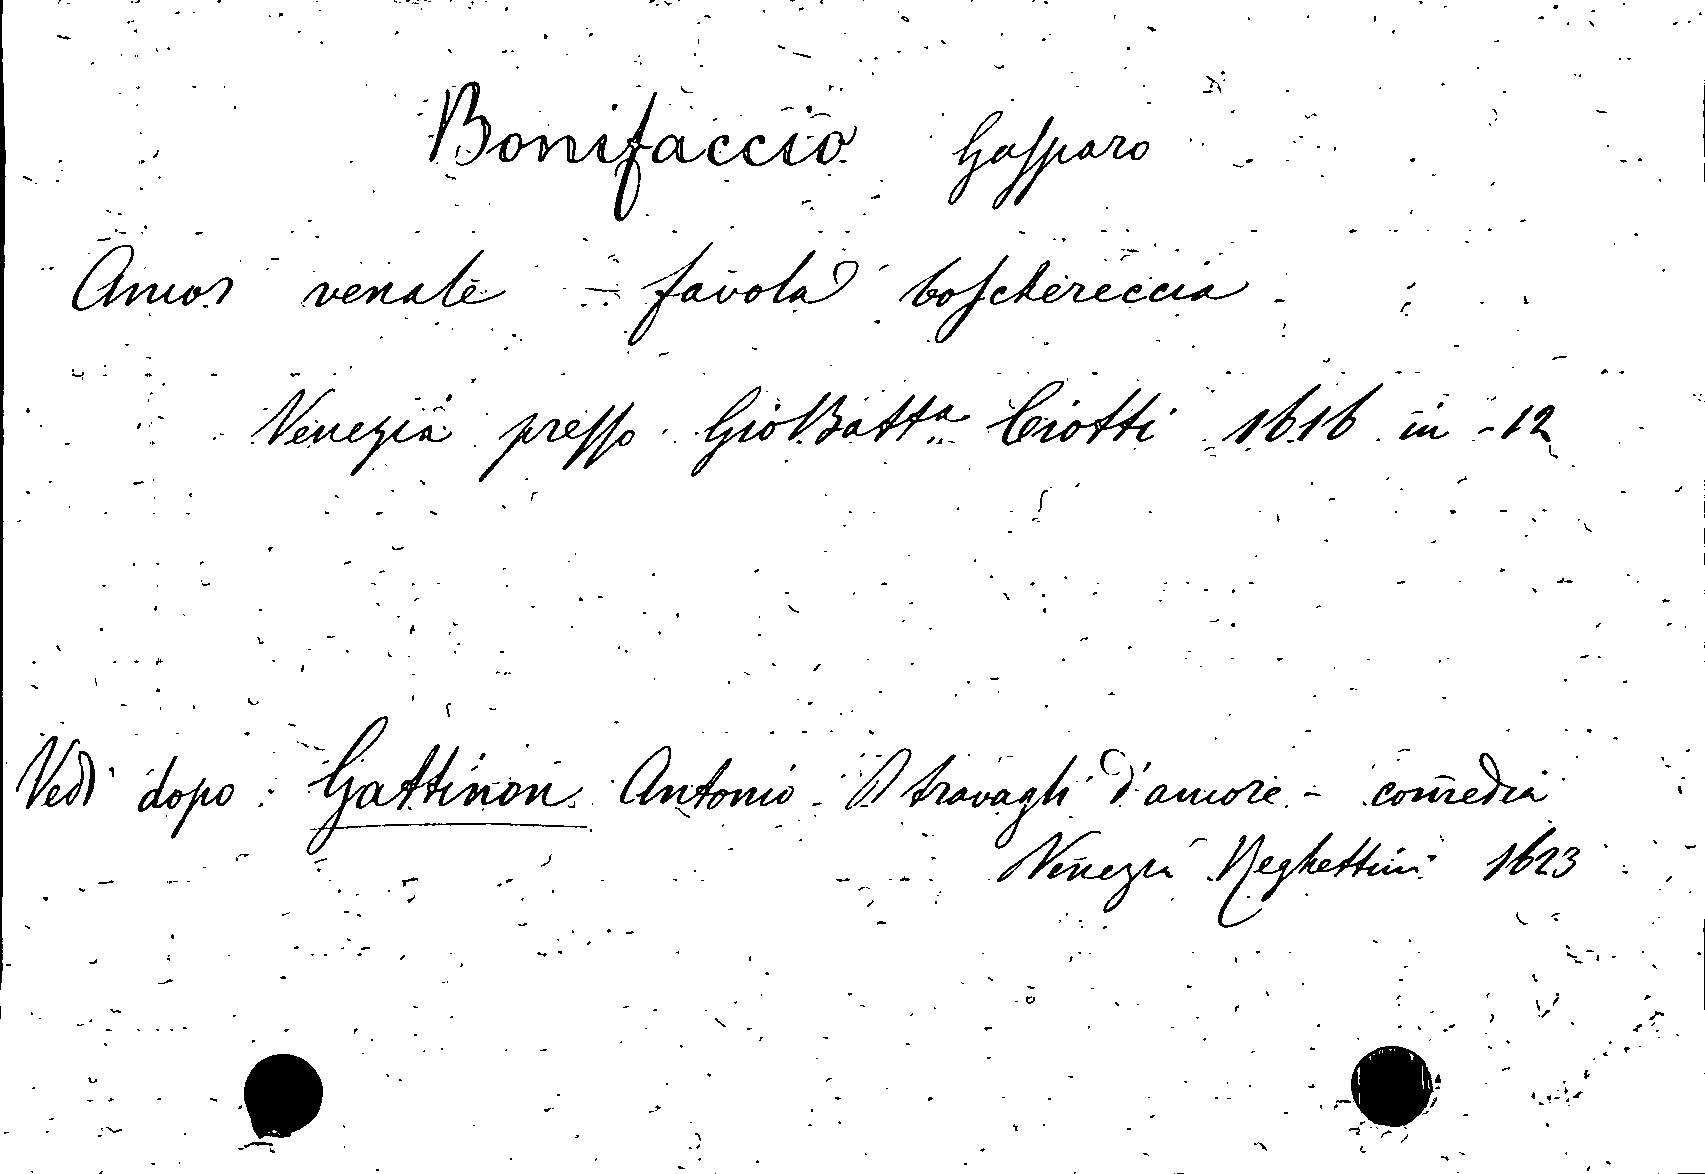 Bonifaccio Gasparo
Amor venale - favola boschereccia
Venezia presso Gio Batta Ciotti 1616 in -12
Vedi dopo: Gattinon Antonio - I travagli d'amore - comedia
Venezia Righettini 1623